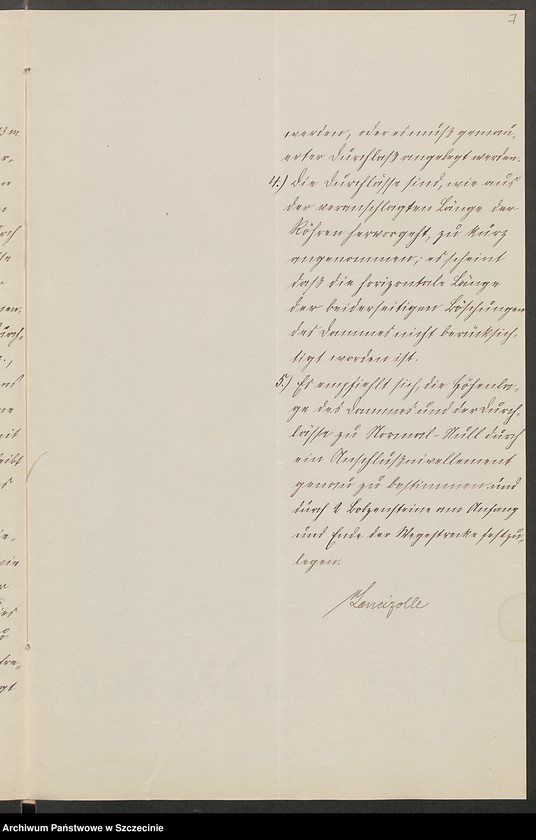 7
werden, oder es muß gemau-
erter Durchlaß angelegt werden.
4.) Die Durchlässe sind, wie aus
der veranschlagten Länge der
Röhren hervorgeht, zu kurz
angenommen; es scheint
daß die horizontale Länge
der beiderseitigen Böschungen
des Dammes nicht berücksich-
tigt worden ist.
5.) Es empfiehlt sich, die Höhenla-
ge des Dammes und der Durch-
lässe zu Normal-Null durch
ein Anschlußnivellement
genau zu bestimmen und
durch 2 Bolzensteine am Anfang
und Ende der Wegestrecke festzu-
legen.
Lancizolle
Archiwum Państwowe w Szczecinie